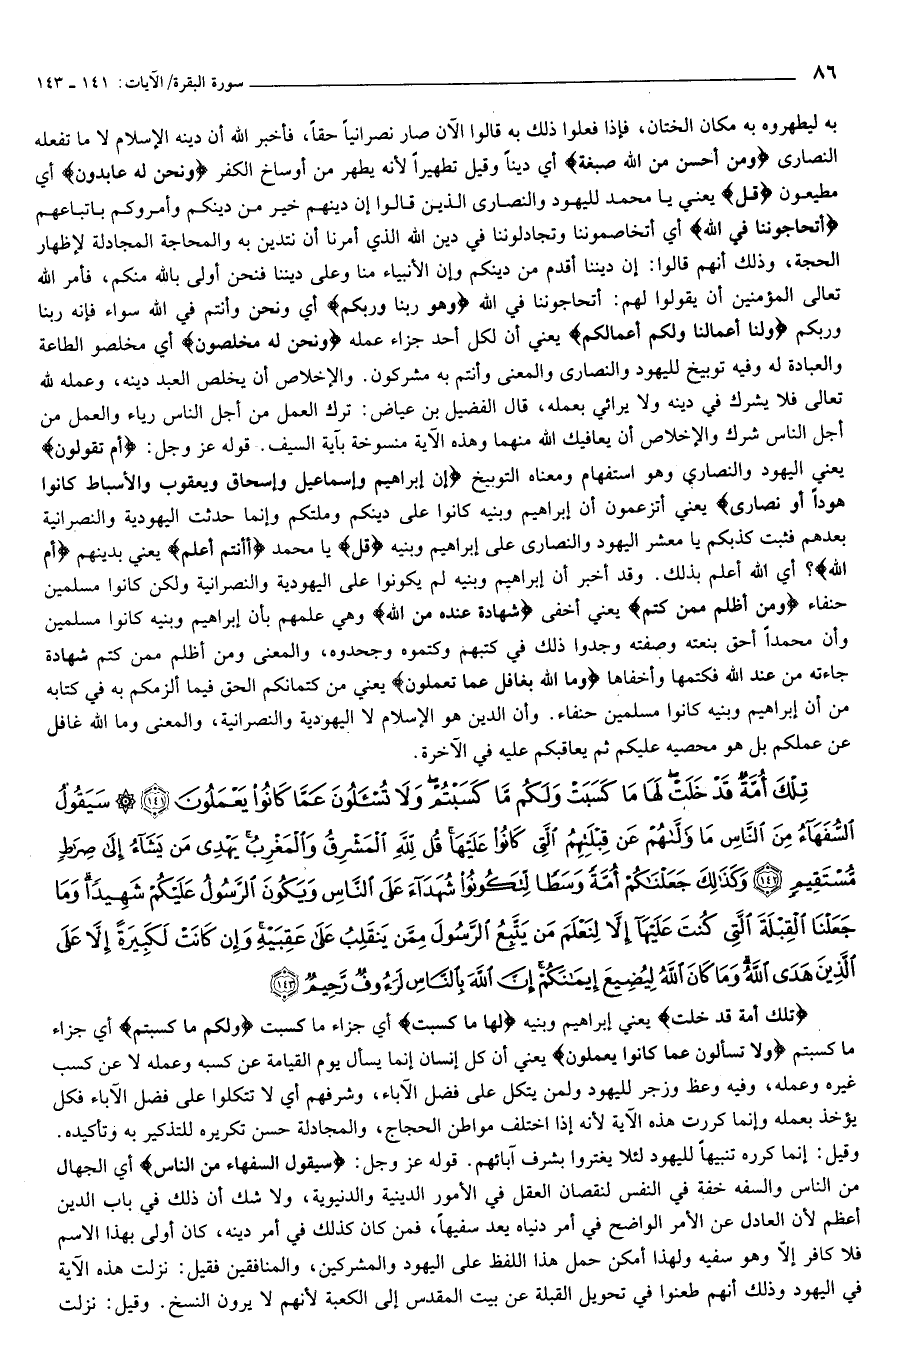 ٨٦ سورة البقرة/ الآيات: ١٤١ ـ ١٤٣
به ليطهروه به مكان الختان، فإذا فعلوا ذلك به قالوا الآن صار نصرانياً حقاً، فأخبر الله أن دينه الإسلام لا ما تفعله
النصارى ﴿ومن أحسن من الله صبغة﴾ أي ديناً وقيل تطهيراً لأنه يطهر من أوساخ الكفر ﴿ونحن له عابدون﴾ أي
مطيعون ﴿قل﴾ يعني يا محمد لليهود والنصارى الذين قالوا إن دينهم خير من دينكم وأمروكم باتباعهم
﴿أتحاجوننا في الله﴾ أي أتخاصموننا وتجادلوننا في دين الله الذي أمرنا أن نتدين به والمحاجة المجادلة لإظهار
الحجة، وذلك أنهم قالوا: إن ديننا أقدم من دينكم وإن الأنبياء منا وعلى ديننا فنحن أولى بالله منكم، فأمر الله
تعالى المؤمنين أن يقولوا لهم: أتحاجوننا في الله ﴿وهو ربنا وربكم﴾ أي ونحن وأنتم في الله سواء فإنه ربنا
وربكم ﴿ولنا أعمالنا ولكم أعمالكم﴾ يعني أن لكل أحد جزاء عمله ﴿ونحن له مخلصون﴾ أي مخلصو الطاعة
والعبادة له وفيه توبيخ لليهود والنصارى والمعنى وأنتم به مشركون. والإخلاص أن يخلص العبد دينه، وعمله لله
تعالى فلا يشرك في دينه ولا يرائي بعمله، قال الفضيل بن عياض: ترك العمل من أجل الناس رياء والعمل من
أجل الناس شرك والإخلاص أن يعافيك الله منهما وهذه الآية منسوخة بآية السيف. قوله عز وجل: ﴿أم تقولون﴾
يعني اليهود والنصارى وهو استفهام ومعناه التوبيخ ﴿إن إبراهيم وإسماعيل وإسحاق ويعقوب والأسباط كانوا
هوداً أو نصارى﴾ يعني أتزعمون أن إبراهيم وبنيه كانوا على دينكم وملتكم وإنما حدثت اليهودية والنصرانية
بعدهم فثبت كذبكم يا معشر اليهود والنصارى على إبراهيم وبنيه ﴿قل﴾ يا محمد ﴿أأنتم أعلم﴾ يعني بدينهم ﴿أم
الله﴾؟ أي الله أعلم بذلك. وقد أخبر أن إبراهيم وبنيه لم يكونوا على اليهودية والنصرانية ولكن كانوا مسلمين
حنفاء ﴿ومن أظلم ممن كتم﴾ يعني أخفى ﴿شهادة عنده من الله﴾ وهي علمهم بأن إبراهيم وبنيه كانوا مسلمين
وأن محمداً أحق بنعته وصفته وجدوا ذلك في كتبهم وكتموه وجحدوه، والمعنى ومن أظلم ممن كتم شهادة
جاءته من عند الله فكتمها وأخفاها ﴿وما الله بغافل عما تعملون﴾ يعني من كتمانكم الحق فيما ألزمكم به في كتابه
من أن إبراهيم وبنيه كانوا مسلمين حنفاء. وأن الدين هو الإسلام لا اليهودية والنصرانية، والمعنى وما الله غافل
عن عملكم بل هو محصيه عليكم ثم يعاقبكم عليه في الآخرة.
تِلْكَ أُمَّةٌ قَدْ خَلَتْ ۖ لَهَا مَا كَسَبَتْ وَلَكُم مَّا كَسَبْتُمْ ۖ وَلَا تُسْـَٔلُونَ عَمَّا كَانُوا۟ يَعْمَلُونَ ﴿١٤١﴾ ۞ سَيَقُولُ
ٱلسُّفَهَآءُ مِنَ ٱلنَّاسِ مَا وَلَّىٰهُمْ عَن قِبْلَتِهِمُ ٱلَّتِى كَانُوا۟ عَلَيْهَا ۚ قُل لِّلَّهِ ٱلْمَشْرِقُ وَٱلْمَغْرِبُ ۚ يَهْدِى مَن يَشَآءُ إِلَىٰ صِرَٰطٍ
مُّسْتَقِيمٍ ﴿١٤٢﴾ وَكَذَٰلِكَ جَعَلْنَٰكُمْ أُمَّةً وَسَطًا لِّتَكُونُوا۟ شُهَدَآءَ عَلَى ٱلنَّاسِ وَيَكُونَ ٱلرَّسُولُ عَلَيْكُمْ شَهِيدًا ۗ وَمَا
جَعَلْنَا ٱلْقِبْلَةَ ٱلَّتِى كُنتَ عَلَيْهَآ إِلَّا لِنَعْلَمَ مَن يَتَّبِعُ ٱلرَّسُولَ مِمَّن يَنقَلِبُ عَلَىٰ عَقِبَيْهِ ۚ وَإِن كَانَتْ لَكَبِيرَةً إِلَّا عَلَى
ٱلَّذِينَ هَدَى ٱللَّهُ ۗ وَمَا كَانَ ٱللَّهُ لِيُضِيعَ إِيمَٰنَكُمْ ۚ إِنَّ ٱللَّهَ بِٱلنَّاسِ لَرَءُوفٌ رَّحِيمٌ ﴿١٤٣﴾
﴿تلك أمة قد خلت﴾ يعني إبراهيم وبنيه ﴿لها ما كسبت﴾ أي جزاء ما كسبت ﴿ولكم ما كسبتم﴾ أي جزاء
ما كسبتم ﴿ولا تسألون عما كانوا يعملون﴾ يعني أن كل إنسان إنما يسأل يوم القيامة عن كسبه وعمله لا عن كسب
غيره وعمله، وفيه وعظ وزجر لليهود ولمن يتكل على فضل الآباء، وشرفهم أي لا تتكلوا على فضل الآباء فكل
يؤخذ بعمله وإنما كررت هذه الآية لأنه إذا اختلف مواطن الحجاج، والمجادلة حسن تكريره للتذكير به وتأكيده.
وقيل: إنما كرره تنبيهاً لليهود لئلا يغتروا بشرف آبائهم. قوله عز وجل: ﴿سيقول السفهاء من الناس﴾ أي الجهال
من الناس والسفه خفة في النفس لنقصان العقل في الأمور الدينية والدنيوية، ولا شك أن ذلك في باب الدين
أعظم لأن العادل عن الأمر الواضح في أمر دنياه يعد سفيهاً، فمن كان كذلك في أمر دينه، كان أولى بهذا الاسم
فلا كافر إلّا وهو سفيه ولهذا أمكن حمل هذا اللفظ على اليهود والمشركين، والمنافقين فقيل: نزلت هذه الآية
في اليهود وذلك أنهم طعنوا في تحويل القبلة عن بيت المقدس إلى الكعبة لأنهم لا يرون النسخ. وقيل: نزلت